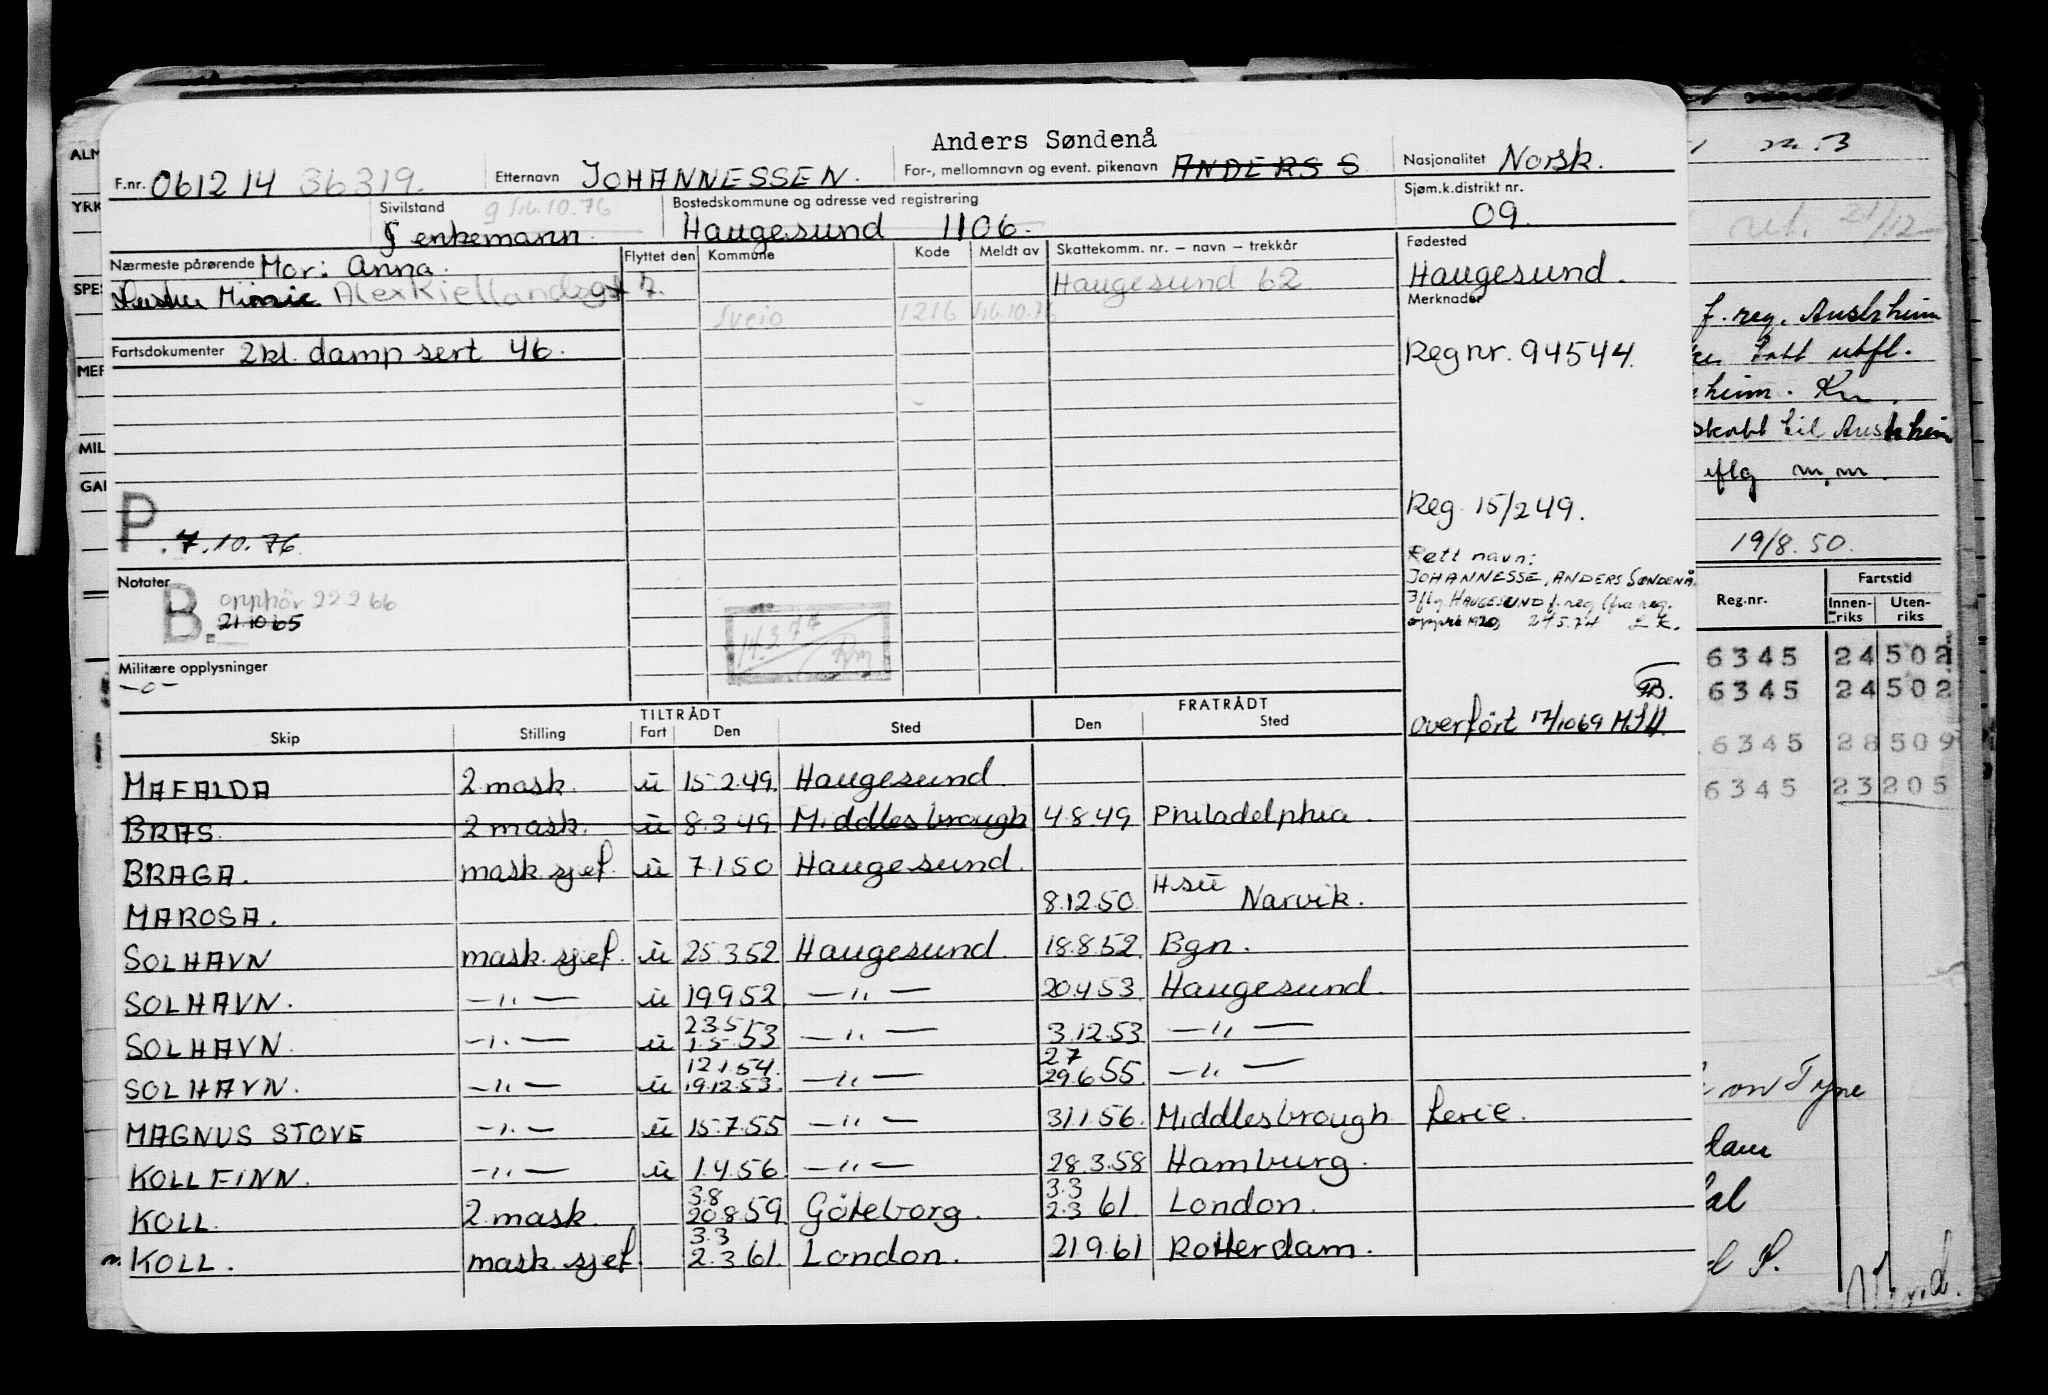 Anders Søndenå
F.nr. 061214 36319. Etternavn JOHANNESSEN. For-, mellomnavn og event. pikenavn ANDERS S Nasjonalitet Norsk.
Sivilstand g 5/6.10.76 enkemann. Bostedskommune og adresse ved registrering Haugesund 1106. Sjøm.k.distrikt nr. 09.
Nærmeste pårørende Mor: Anna. Flyttet den Kommune Kode Meldt av Skattekomm. nr. – navn – trekkår Fødested
Minnie Alex Kiellandsgt 7. Haugesund 62 Haugesund.
Sveio 1216 5/6.10.76 Merknader
Fartsdokumenter 2kl. damp sert 46. Reg nr. 94544.
Reg. 15/2 49.
P. 7.10.76.
Rett navn:
JOHANNESSE, ANDERS SØNDENÅ.
Iflg HAUGESUND f.reg (fra reg.
1920) 24.5.74
Notater
B. opphör 22 2 66
21 10 65
14.3.77
Militære opplysninger
-o-
overført 17/10 69
TILTRÅDT FRATRÅDT
Skip Stilling Fart Den Sted Den Sted
MAFALDA 2 mask. u 15.2.49. Haugesund
BRAS. 2 mask. u 8.3.49 Middlesbrough 4.8.49 Philadelphia.
BRAGA. mask sjef. u 7.1.50 Haugesund.
MAROSA. 8.12.50 Narvik.
SOLHAVN mask. sjef. u 25.3.52 Haugesund 18.8.52 Bgn.
SOLHAVN. —"— u 19.9.52 —"— 20.4.53. Haugesund.
SOLHAVN. —"— u 23.5 1.5.53 —"— 3.12.53 —"—
SOLHAVN. —"— u 12.1.54. 19.12.53. —"— 2 7 29.6 55 —"—
MAGNUS STOVE —"— u 15.7.55 —"— 31.1.56. Middlesbrough ferie.
KOLLFINN. —"— u 1.4.56. —"— 28.3.58 Hamburg.
KOLL. 2 mask. 3.8 20.8.59 Göteborg. 3.3 2.3 61. London.
KOLL. mask sjef. 3.3 2.3.61. London. 21.9.61 Rotterdam.
ALM
YRK
SPES
MER
MIL
GAI
f. reg. Austrheim
tatt utfl.
heim. Kr.
skatt til Austrheim
iflg m.m.
19/8.50.
Reg.nr. Fartstid
Innen-riks Uten-riks
6345 24 502
6345 24 502
6345 28 509
6345 23 205
on Tyne